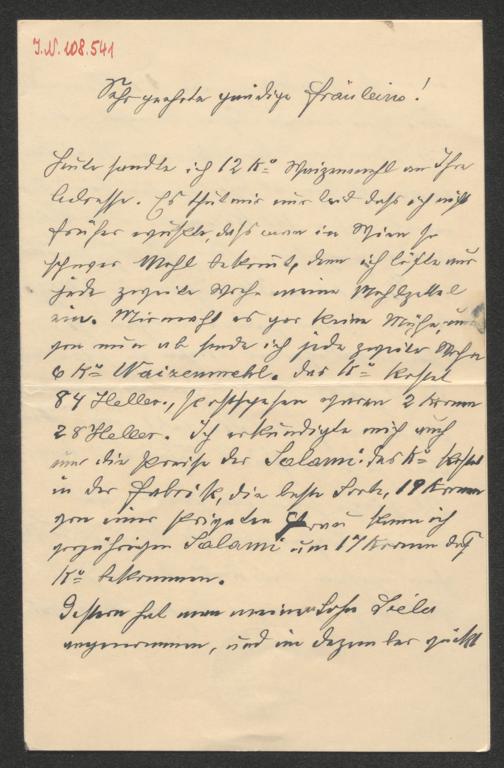 J.N. 108.541
Sehr geehrte gnädige Fräulein!
Heute sandte ich 12 Ko Waizenmehl an Ihre
Adresse. Es thut mir nur leid daß ich nicht
früher wußte, daß man in Wien so
schwer Mehl bekomt, denn ich löste nur
jede zweite Woche meine Mehlzettel
ein. Mir macht es gar keine Mühe, und
von nun ab sende ich jede zweite Woche
6 Ko Waizenmehl. das Ko kostet
84 Heller., postspesen waren 2 Kronen
28 Heller. Ich erkundigte mich auch
um die Preise der Salami. das Ko kostet
in der Fabrik, die beste Sorte, 19 Kronen
von einer Privaten Frau kann ich
vorjährigen Salami um 17 Kronen das
Ko bekommen.
Gestern hat man meinen Sohn
angenommen, und im Dezember rückt